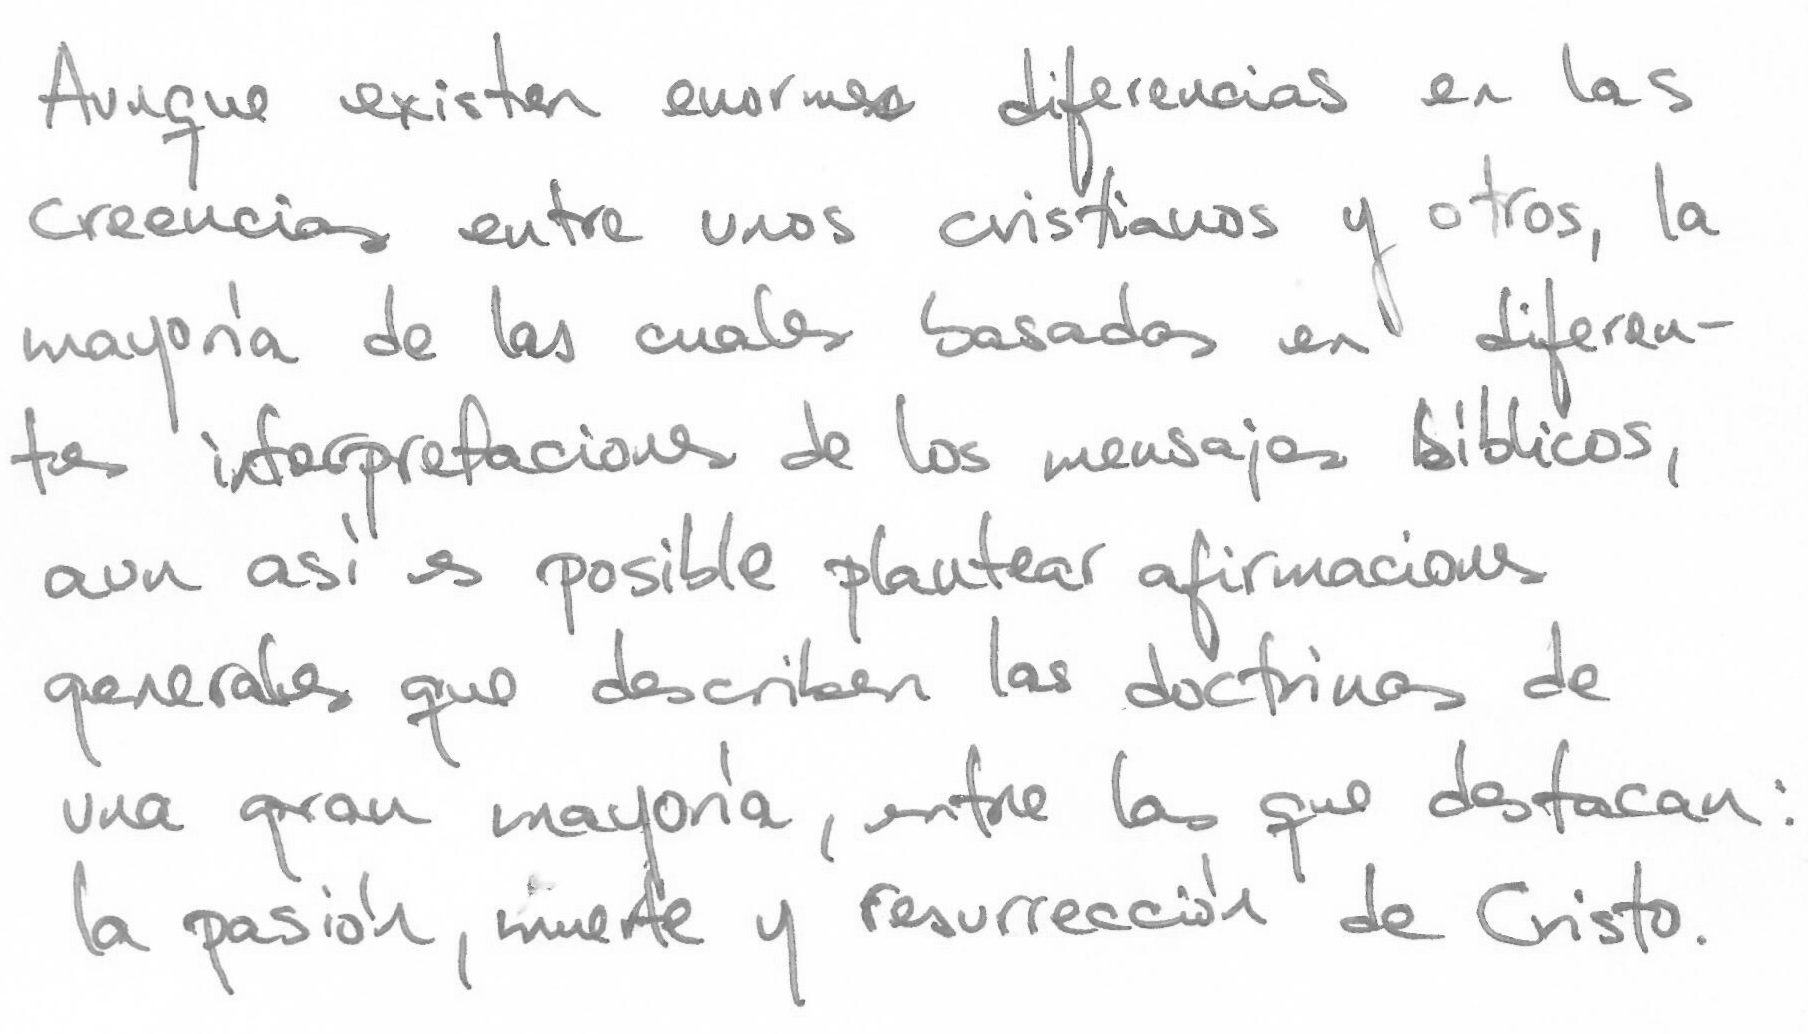 Aunque existen enormes diferencias en las
creencias entre unos cristianos y otros, la
mayoría de las cuales basadas en diferen-
tes interpretaciones de los mensajes bíblicos,
aun así es posible plantear afirmaciones
generales que describen las doctrinas de
una gran mayoría, entre las que destacan:
la pasión, muerte y resurrección de Cristo.